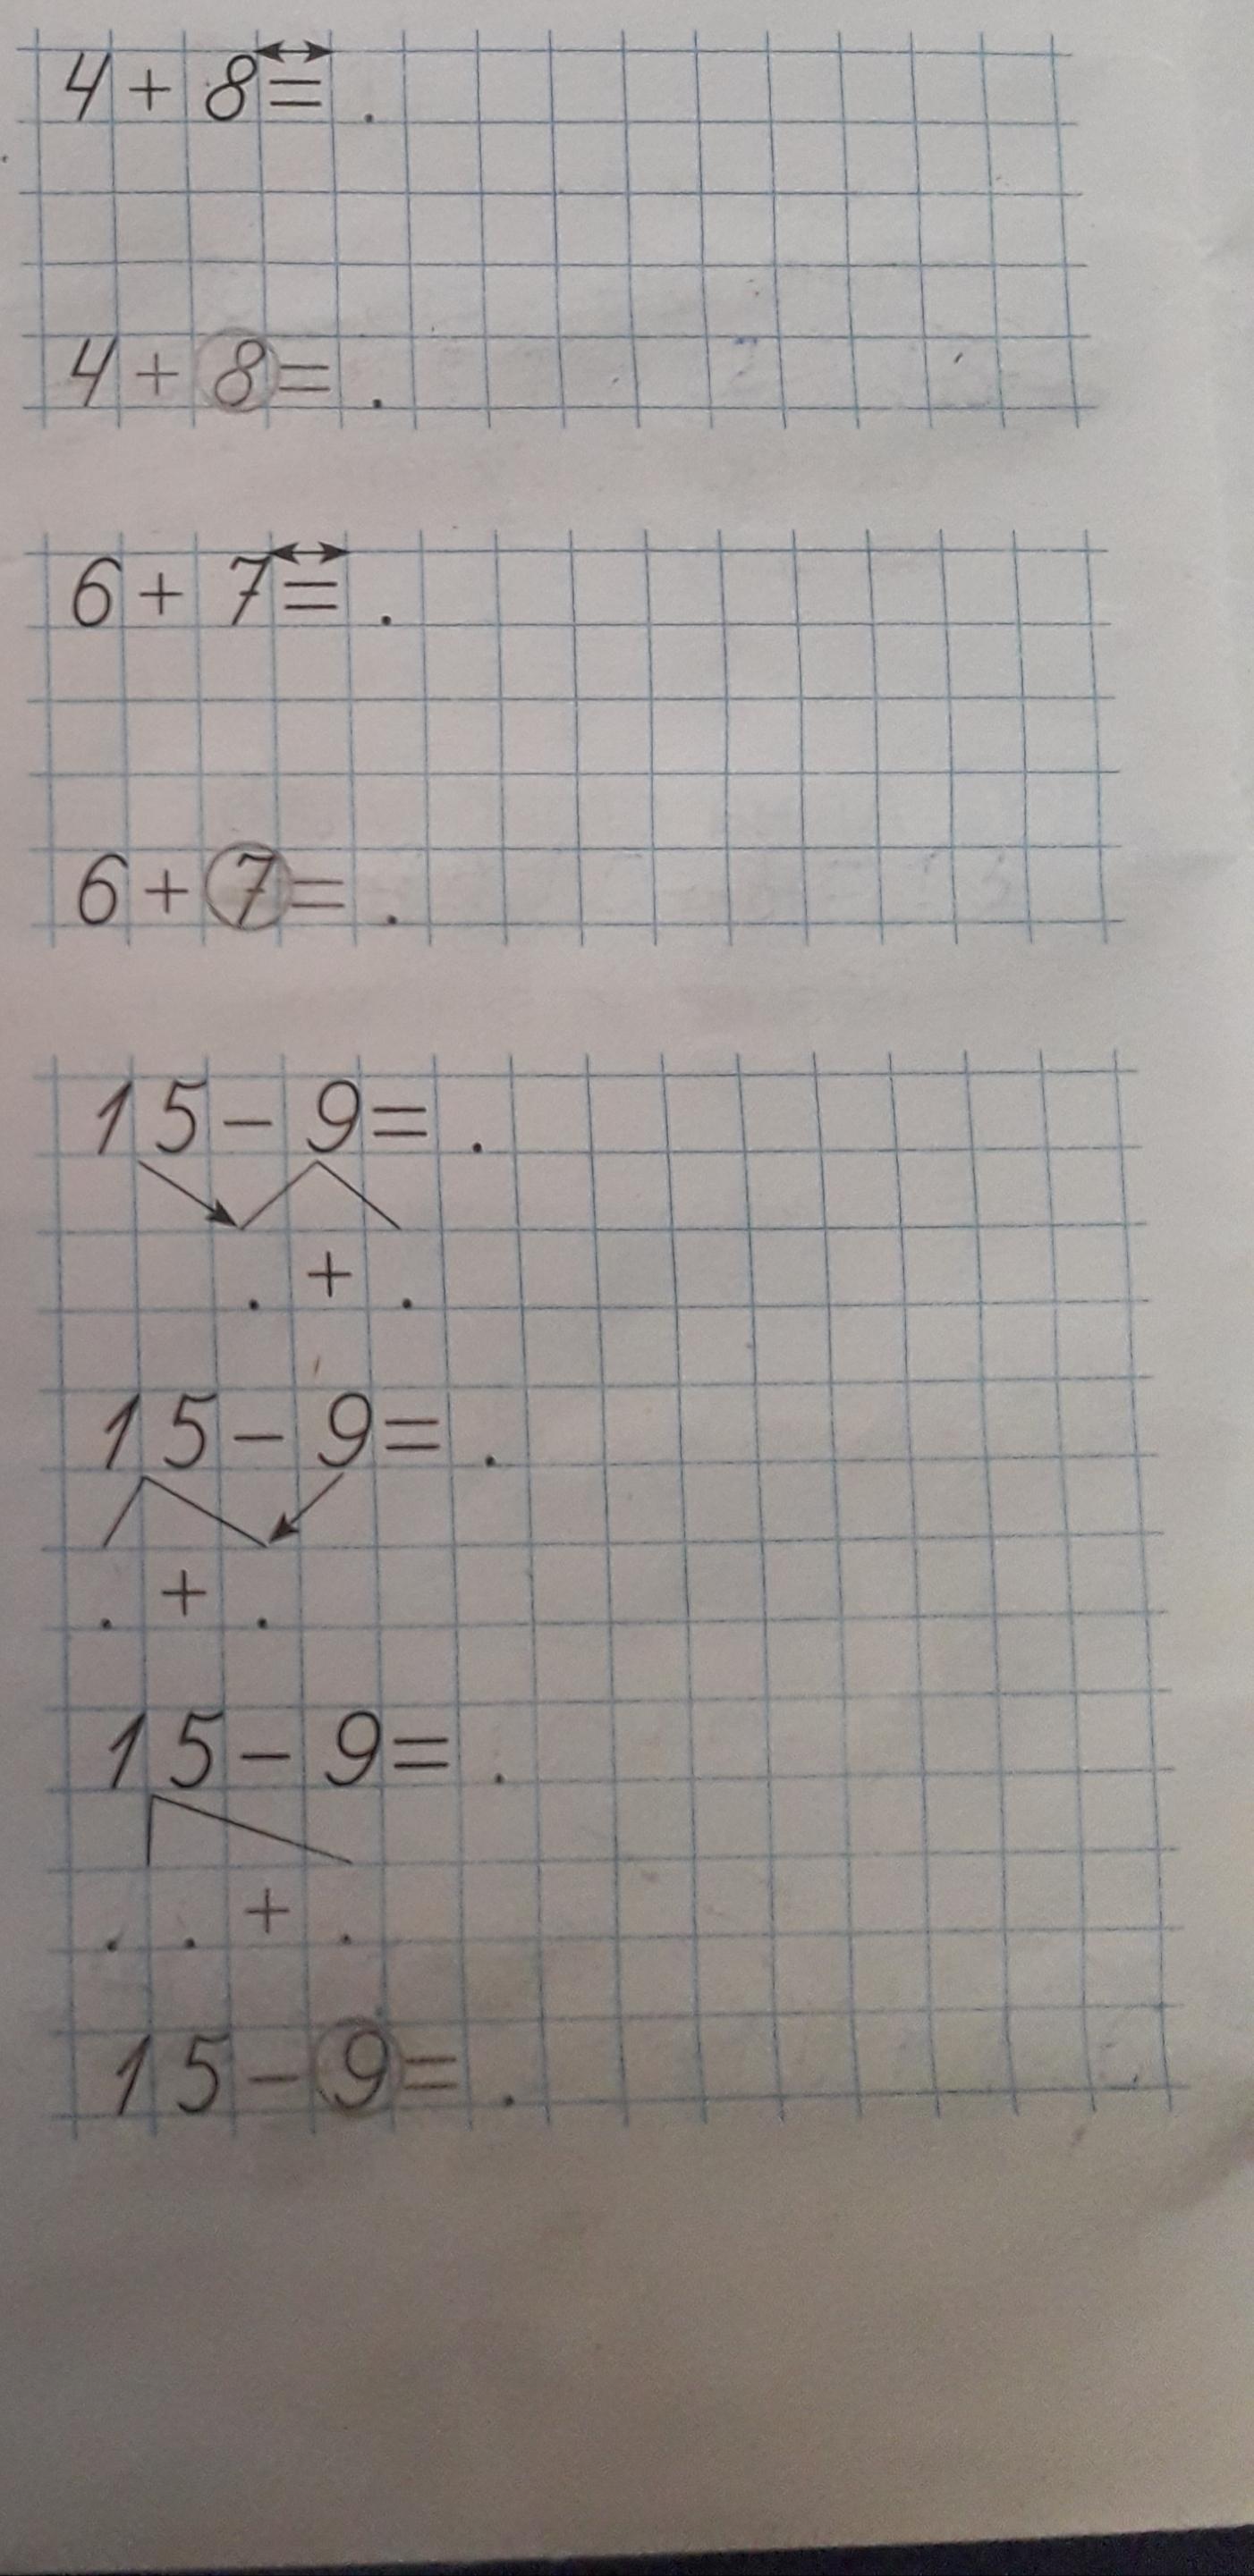 4 + 8 = .
4 + 8 = .
6 + 7 = .
6 + 7 = .
15 - 9 = .
. + .
15 - 9 = .
. + .
15 - 9 = .
. . + .
15 - 9 = .